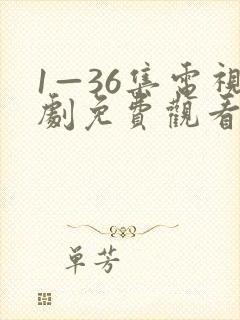 1—36集電視
劇免費觀看
單芳